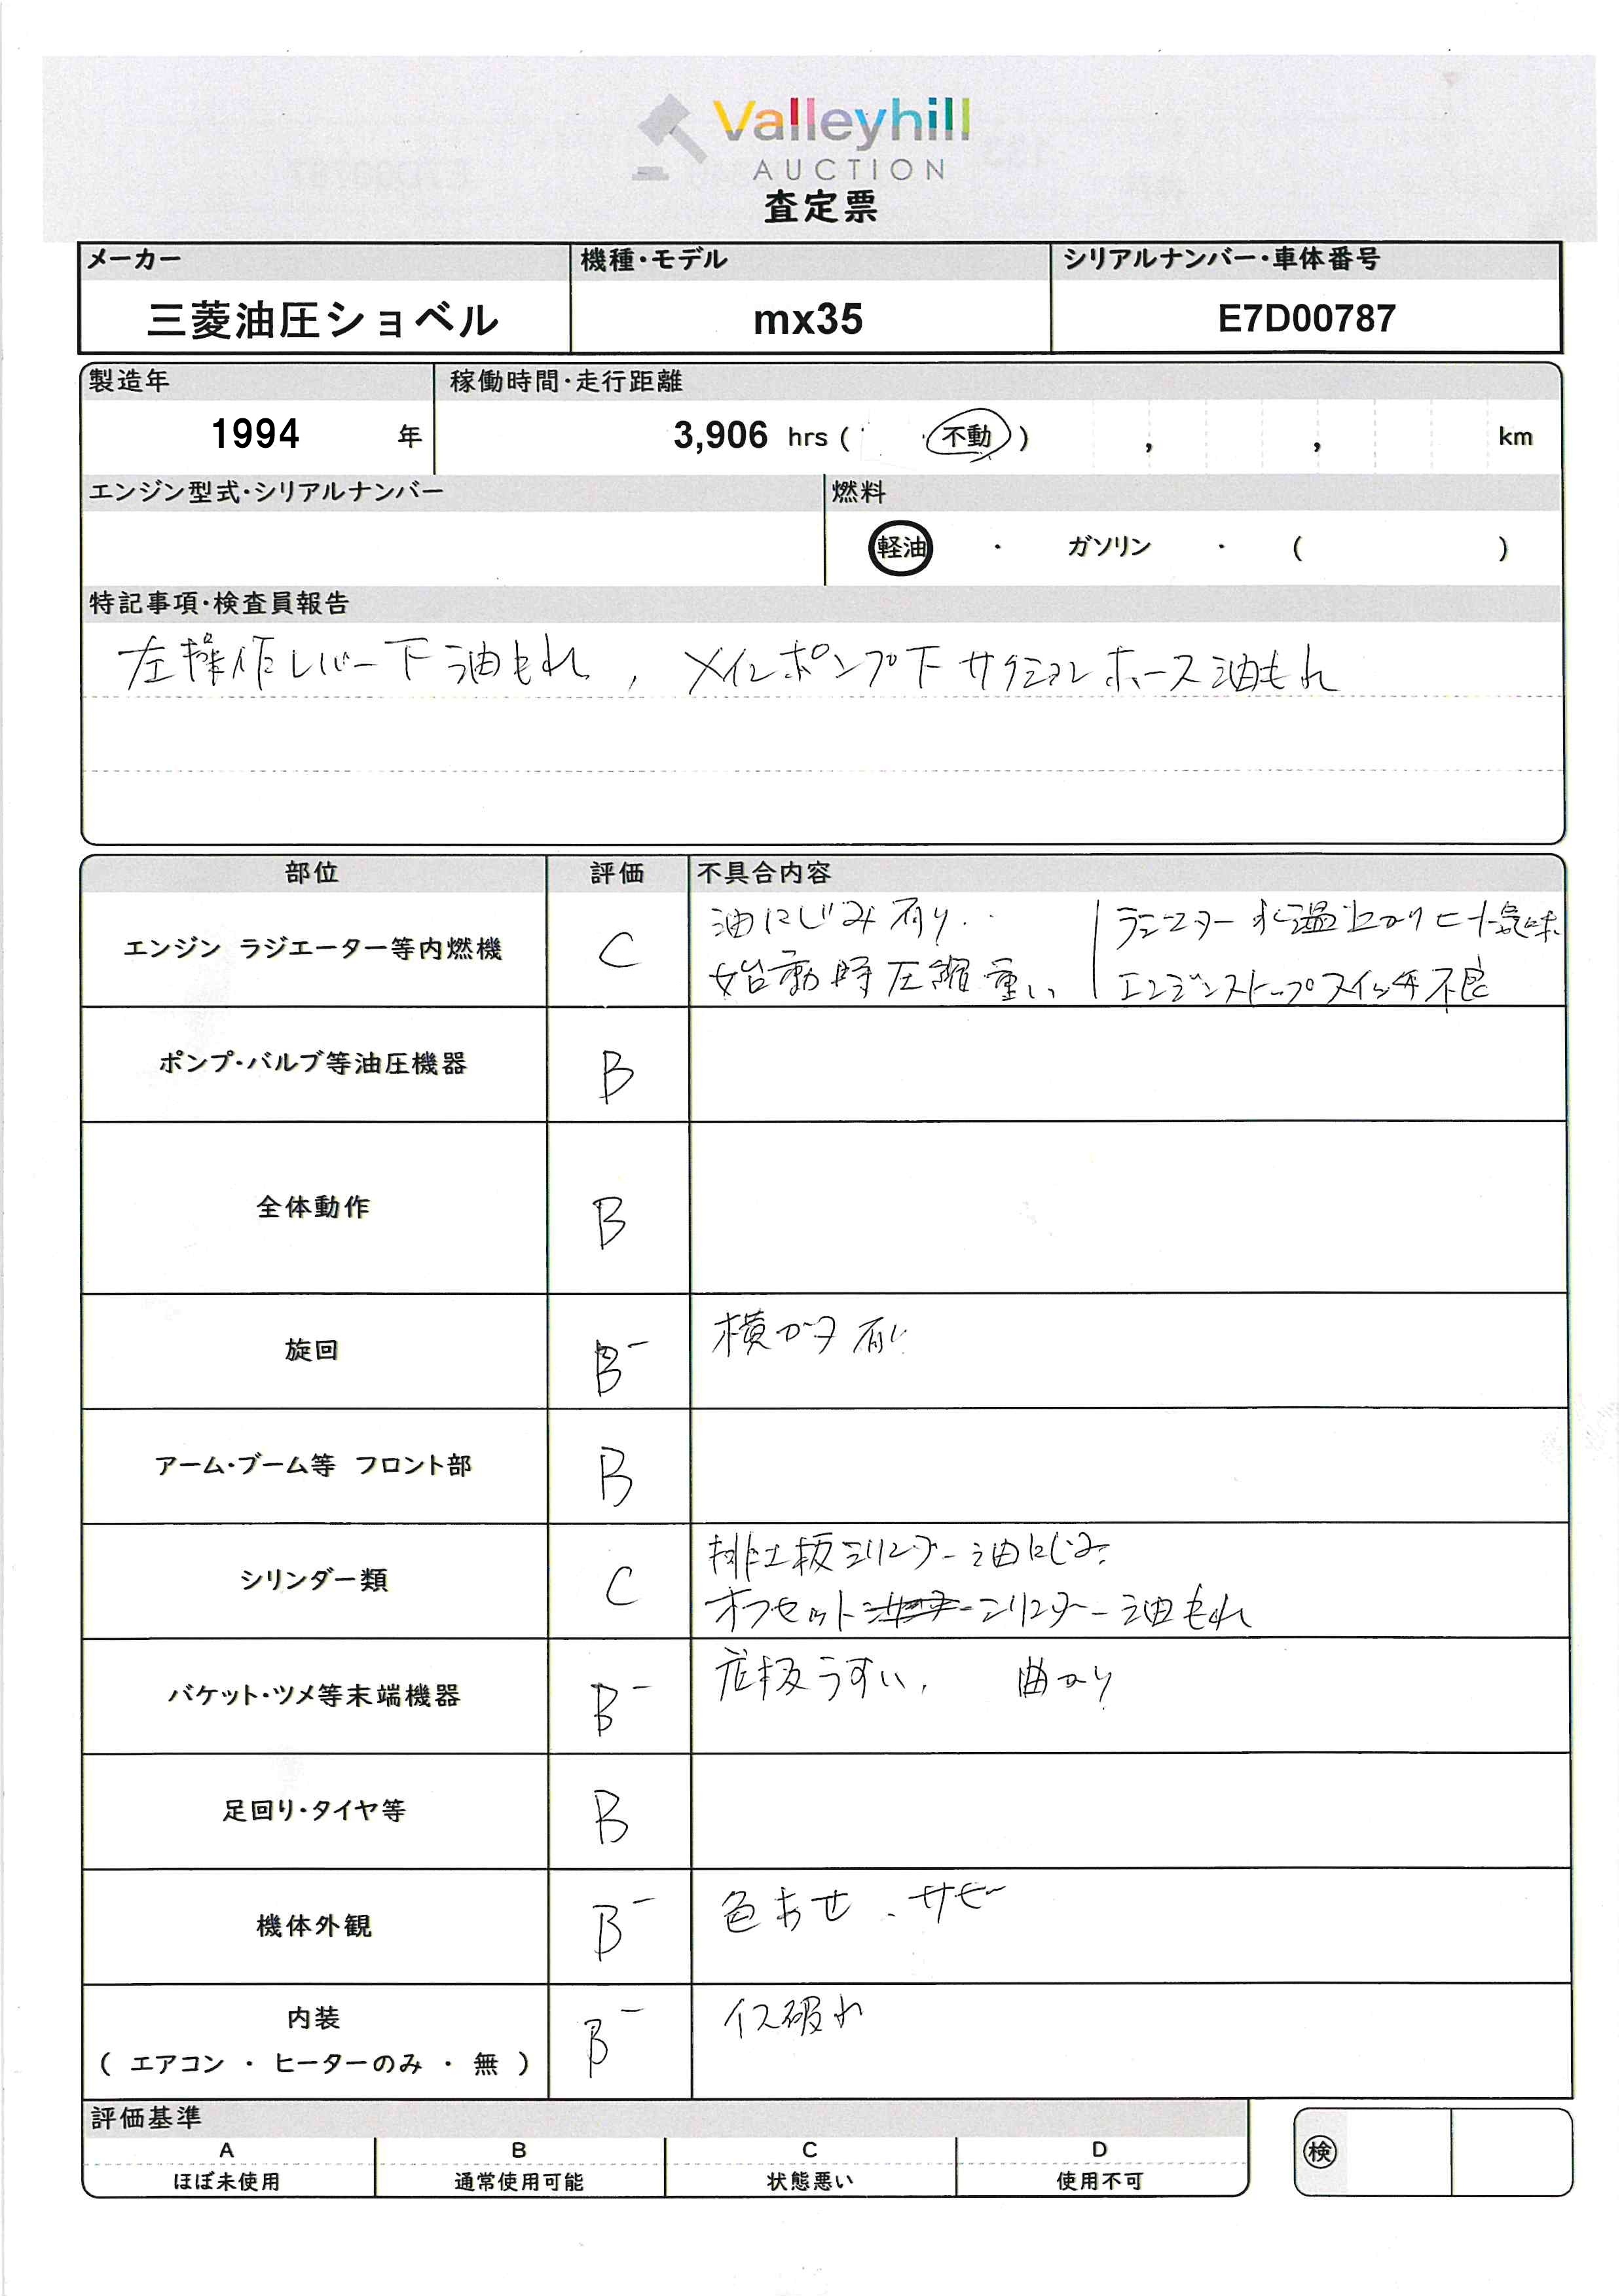 Valleyhill
AUCTION
査定票
メーカー 機種・モデル シリアルナンバー・車体番号
三菱油圧ショベル mx35 E7D00787
製造年 稼働時間・走行距離
1994 年 3,906 hrs ( 不動 ) , , km
エンジン型式・シリアルナンバー 燃料
軽油 ・ ガソリン ・ ( )
特記事項・検査員報告
左操作レバー下油もれ, メインポンプ下サクションホース油もれ
部位 評価 不具合内容
エンジン ラジエーター等内燃機 C
油にじみ有り.
始動時圧縮重い
ラジエター水温上がり気味
エンジンストップスイッチ不良
ポンプ・バルブ等油圧機器 B
全体動作 B
旋回 B- 横ガタ有り
アーム・ブーム等 フロント部 B
シリンダー類 C
排土板シリンダー油にじみ
オフセットシリンダー油もれ
バケット・ツメ等末端機器 B- 底板うすい, 曲がり
足回り・タイヤ等 B
機体外観 B- 色あせ、サビ
内装
( エアコン ・ ヒーターのみ ・ 無 ) B- イス破れ
評価基準
A B C D
ほぼ未使用 通常使用可能 状態悪い 使用不可
検